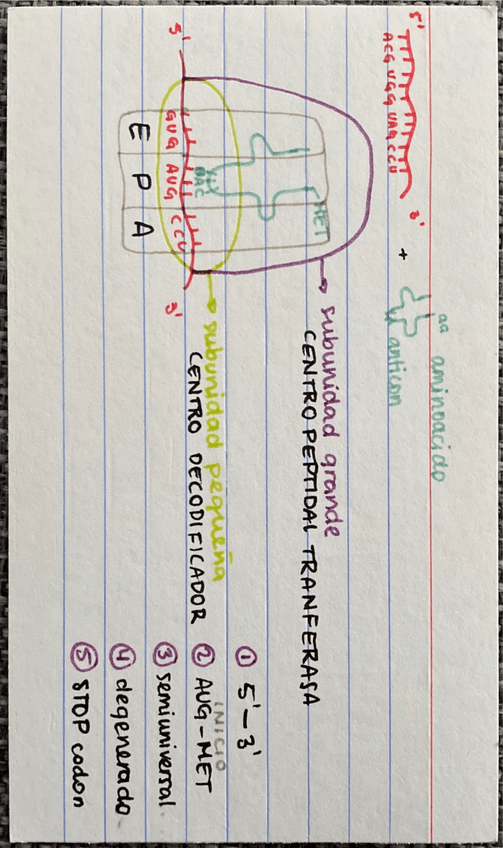 aa aminoacido
5' 3' + anticon
ACG UGG UAG CCU
MET
subunidad grande
CENTRO PEPTIDAL TRANFERASA
5' GUG AUG CCU 3'
E P A
subunidad pequeña
CENTRO DECODIFICADOR
① 5' - 3'
INICIO
② AUG - MET
③ semiuniversal.
④ degenerado.
⑤ STOP codon